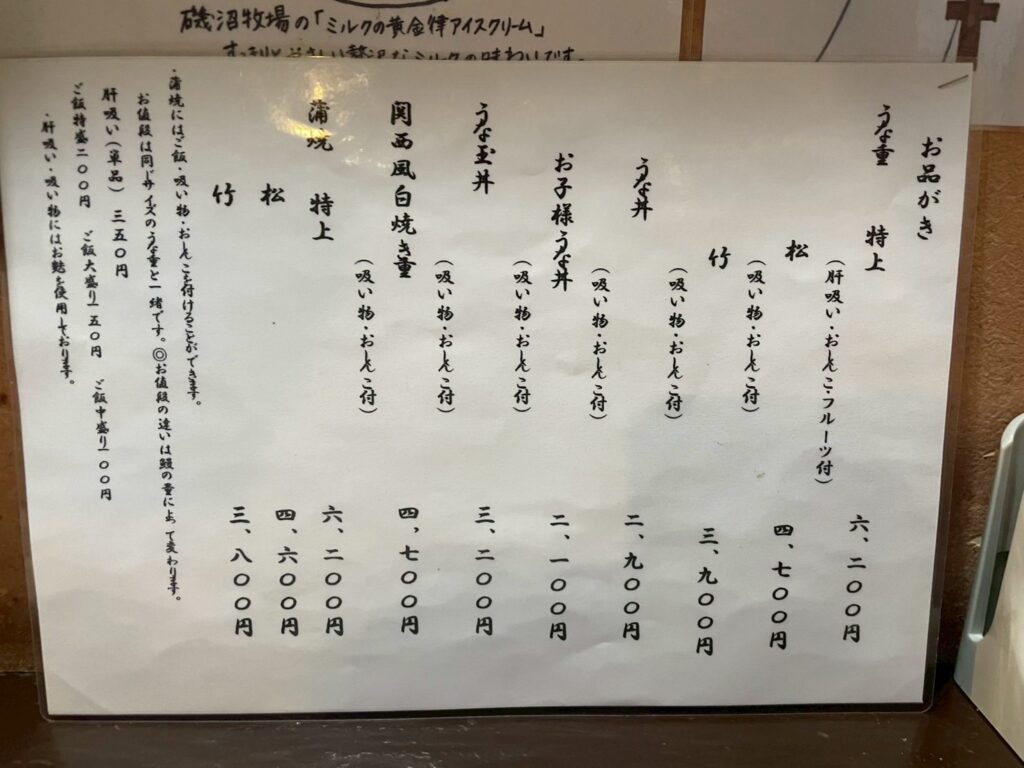 磯沼牧場の「ミルクの黄金律アイスクリーム」
すっきりとやさしい贅沢なミルクの味わいです。
お品がき
うな重 特上 六、二〇〇円
(肝吸い・おしんこ・フルーツ付)
松 四、七〇〇円
(吸い物・おしんこ付)
竹 三、九〇〇円
(吸い物・おしんこ付)
うな丼 二、九〇〇円
(吸い物・おしんこ付)
お子様うな丼 二、一〇〇円
(吸い物・おしんこ付)
うな玉丼 三、二〇〇円
(吸い物・おしんこ付)
関西風白焼き重 四、七〇〇円
(吸い物・おしんこ付)
蒲焼 特上 六、二〇〇円
松 四、六〇〇円
竹 三、八〇〇円
・蒲焼にはご飯・吸い物・おしんこを付けることができます。
お値段は同じサイズのうな重と一緒です。◎お値段の違いは鰻の量によって変わります。
肝吸い(単品) 三五〇円
ご飯特盛二〇〇円 ご飯大盛り一五〇円 ご飯中盛り一〇〇円
・肝吸い・吸い物にはお麩を使用しております。